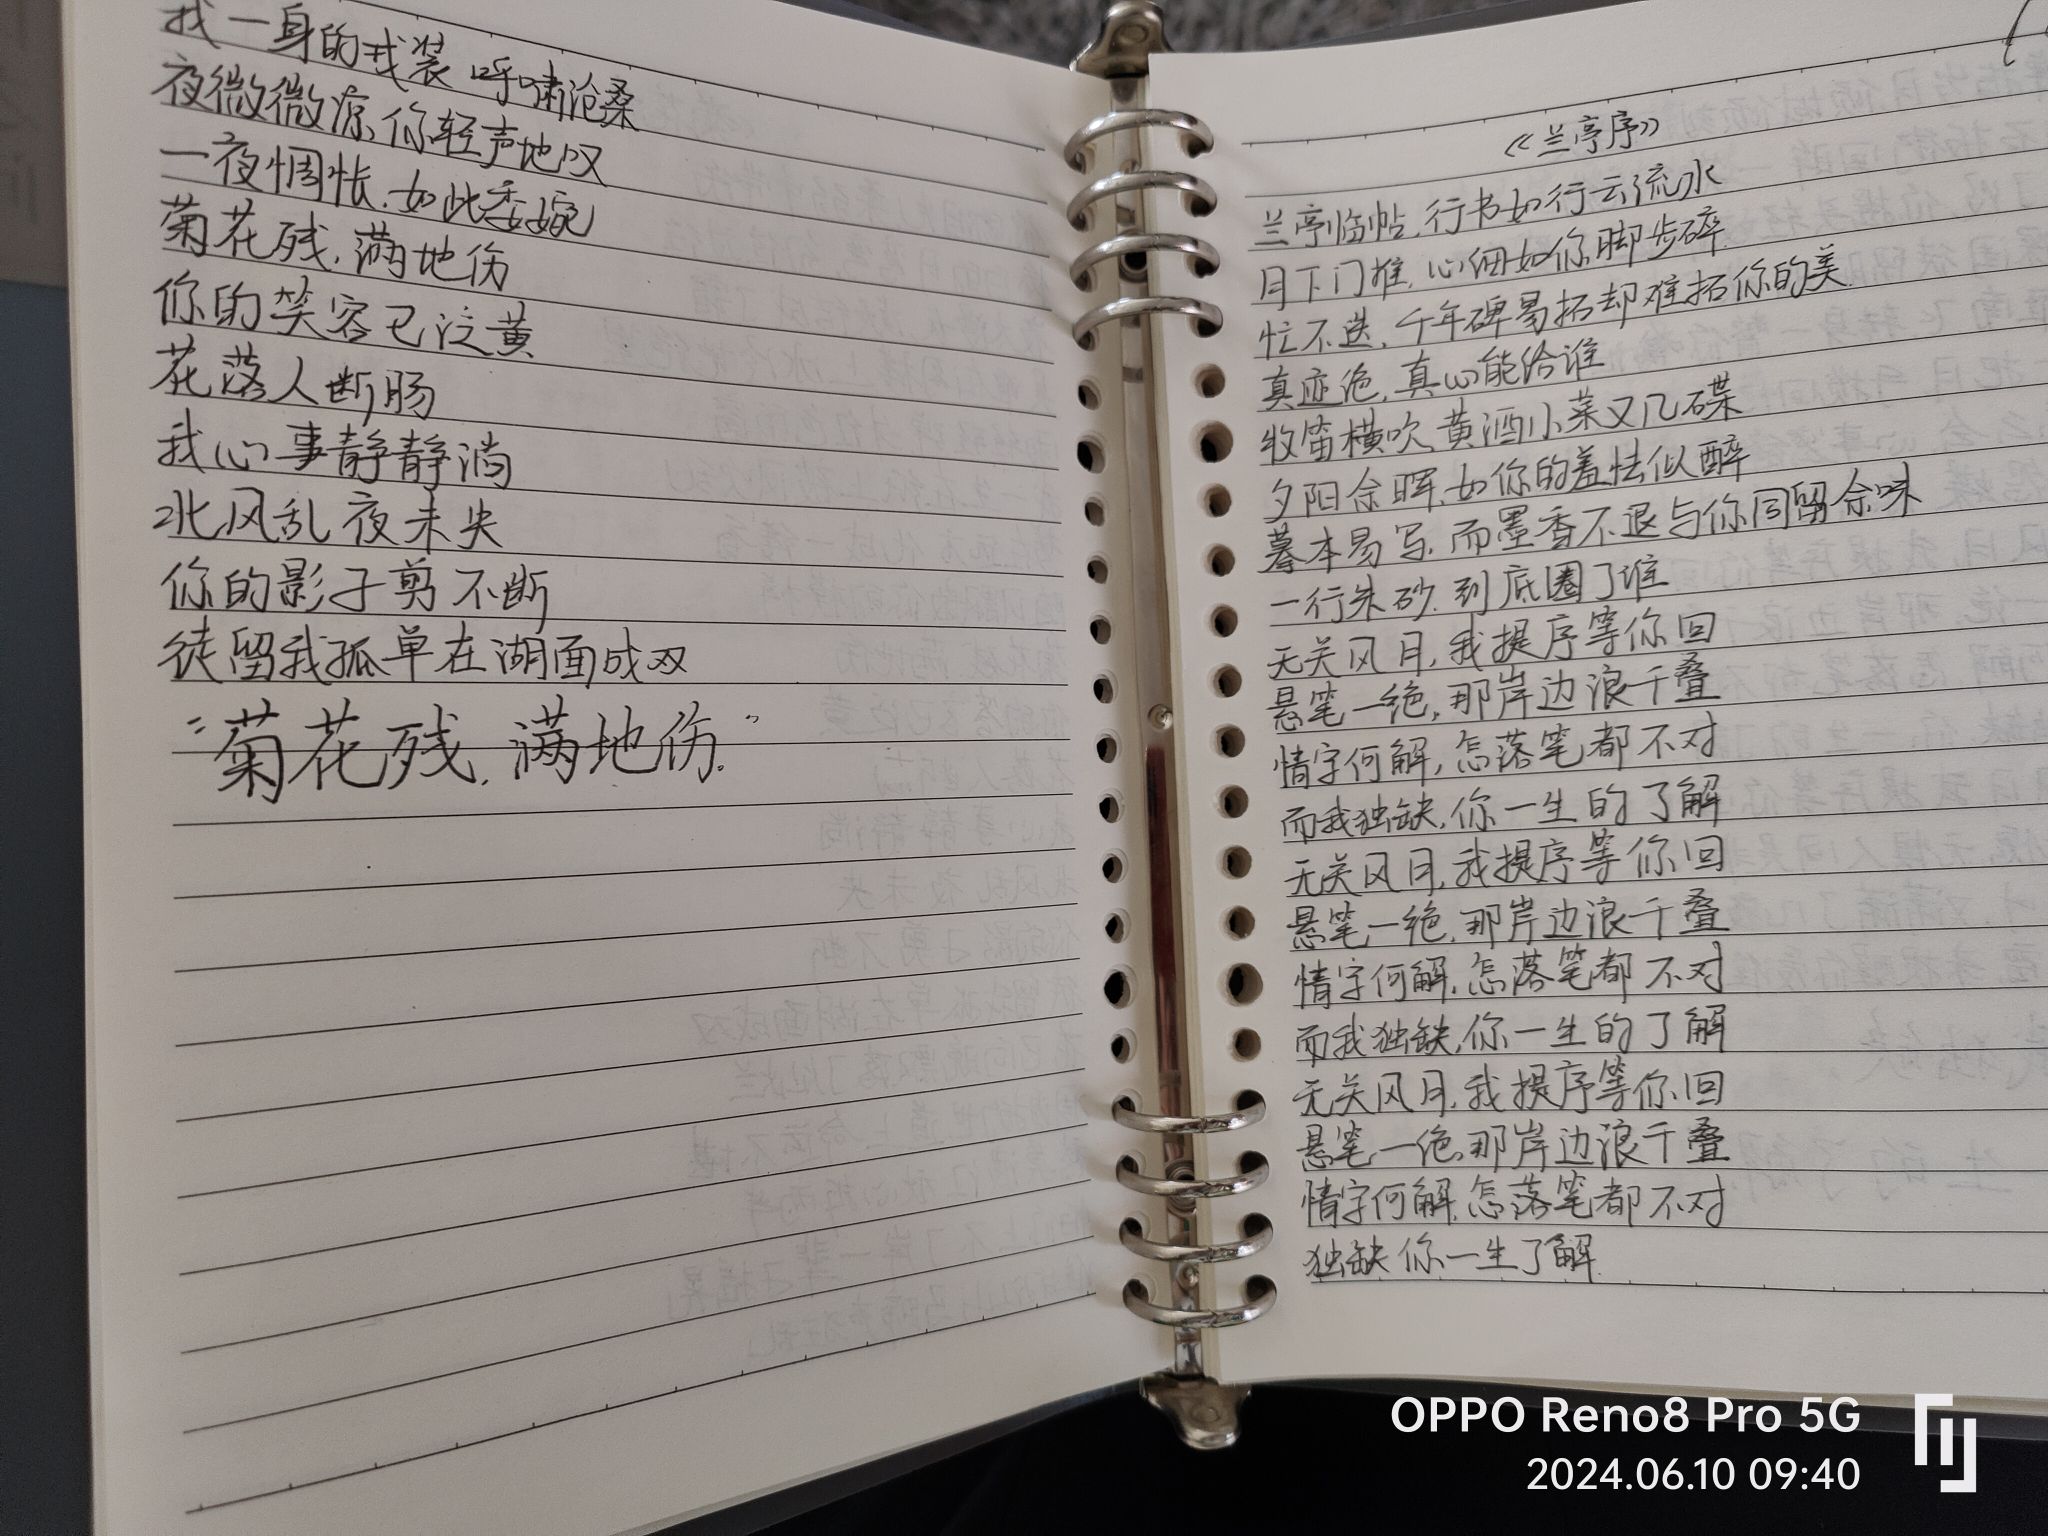 我一身的戎装 呼啸沧桑
夜微微凉,你轻声地叹
一夜惆怅.如此委婉
菊花残,满地伤
你的笑容已泛黄
花落人断肠
我心事静静淌
北风乱夜未央
你的影子剪不断
徒留我孤单在湖面成双
“菊花残,满地伤.”
《兰亭序》
兰亭临帖,行书如行云流水
月下门推,心细如你脚步碎
忙不迭,千年碑易拓却难拓你的美
真迹绝,真心能给谁
牧笛横吹,黄酒小菜又几碟
夕阳余晖,如你的羞怯似醉
摹本易写,而墨香不退与你同留余味
一行朱砂,到底圈了谁
无关风月,我提序等你回
悬笔一绝,那岸边浪千叠
情字何解,怎落笔都不对
而我独缺,你一生的了解
无关风月,我提序等你回
悬笔一绝,那岸边浪千叠
情字何解,怎落笔都不对
而我独缺,你一生的了解
无关风月,我提序等你回
悬笔一绝,那岸边浪千叠
情字何解,怎落笔都不对
独缺你一生了解
OPPO Reno8 Pro 5G
2024.06.10 09:40